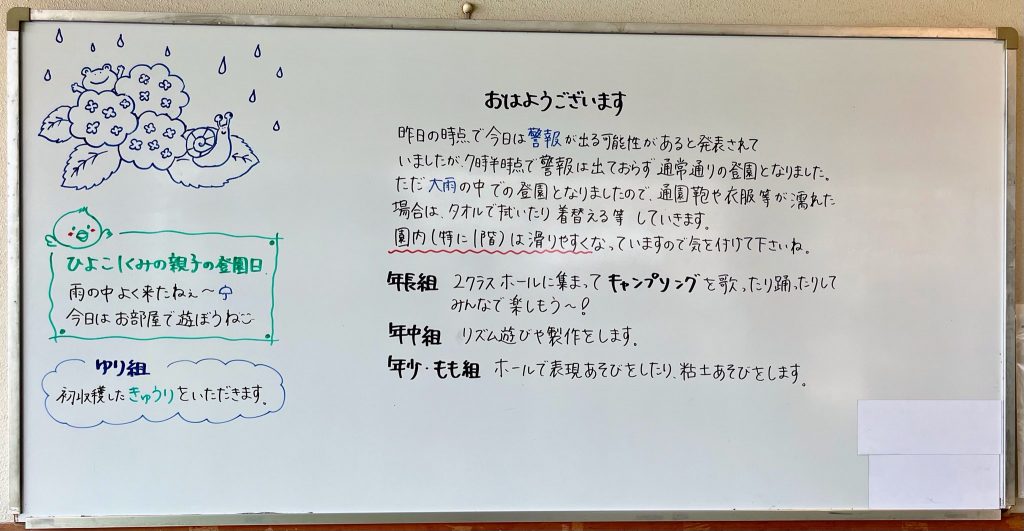 おはようございます
昨日の時点で今日は警報が出る可能性があると発表されて
いましたが、7時半時点で警報は出ておらず通常通りの登園となりました。
ただ大雨の中での登園となりましたので、通園鞄や衣服等が濡れた
場合は、タオルで拭いたり着替える等していきます。
園内(特に1階)は滑りやすくなっていますので気を付けて下さいね。
年長組 2クラスホールに集まってキャンプソングを歌ったり踊ったりして
みんなで楽しもう〜!
年中組 リズム遊びや製作をします。
年少・もも組 ホールで表現あそびをしたり、粘土あそびをします。
ひよこ1くみの親子の登園日
雨の中よく来たねぇ〜
今日はお部屋で遊ぼうね
ゆり組
初収穫したきゅうりをいただきます。